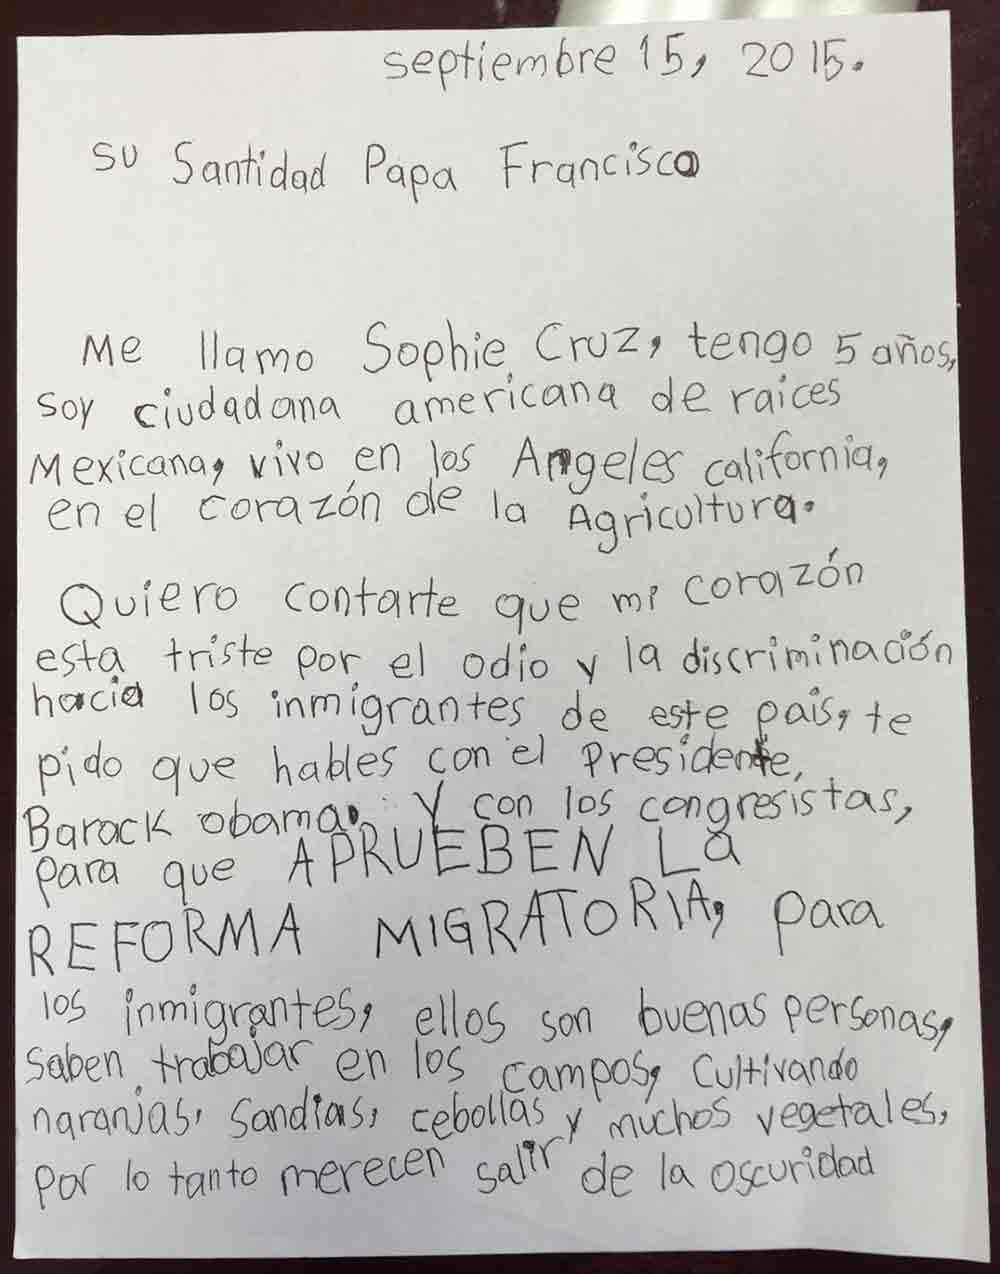 septiembre 15, 2015.
su Santidad Papa Francisco
Me llamo Sophie Cruz, tengo 5 años,
soy ciudadana americana de raices
Mexicana, vivo en los Angeles california,
en el corazón de la Agricultura.
Quiero contarte que mi corazón
esta triste por el odio y la discriminación
hacia los inmigrantes de este pais, te
pido que hables con el Presidente,
Barack obama. Y con los congresistas,
para que APRUEBEN La
REFORMA MIGRATORIA, para
los inmigrantes, ellos son buenas personas,
saben trabajar en los campos, cultivando
naranjas, sandias, cebollas y muchos vegetales,
por lo tanto merecen salir de la oscuridad